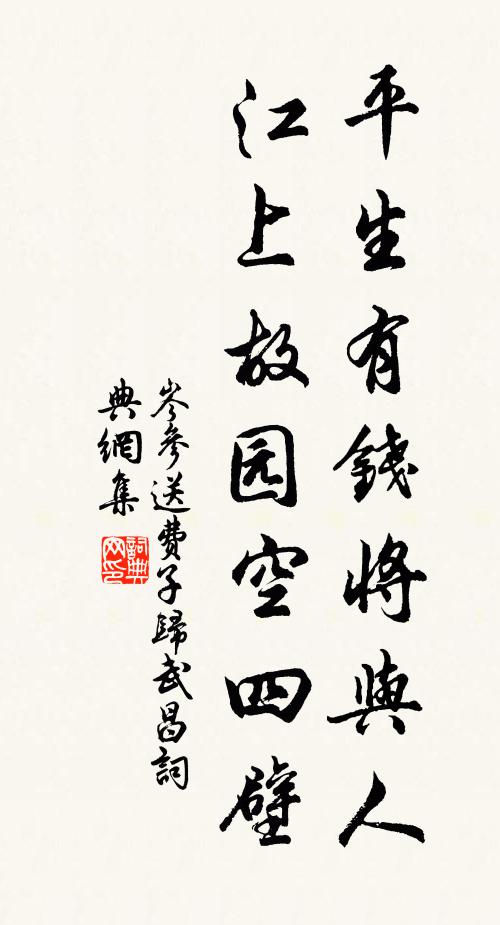 平生有錢將與人
江上故园空四壁
岑參送費子歸武昌詞
典網集
詞典
网印